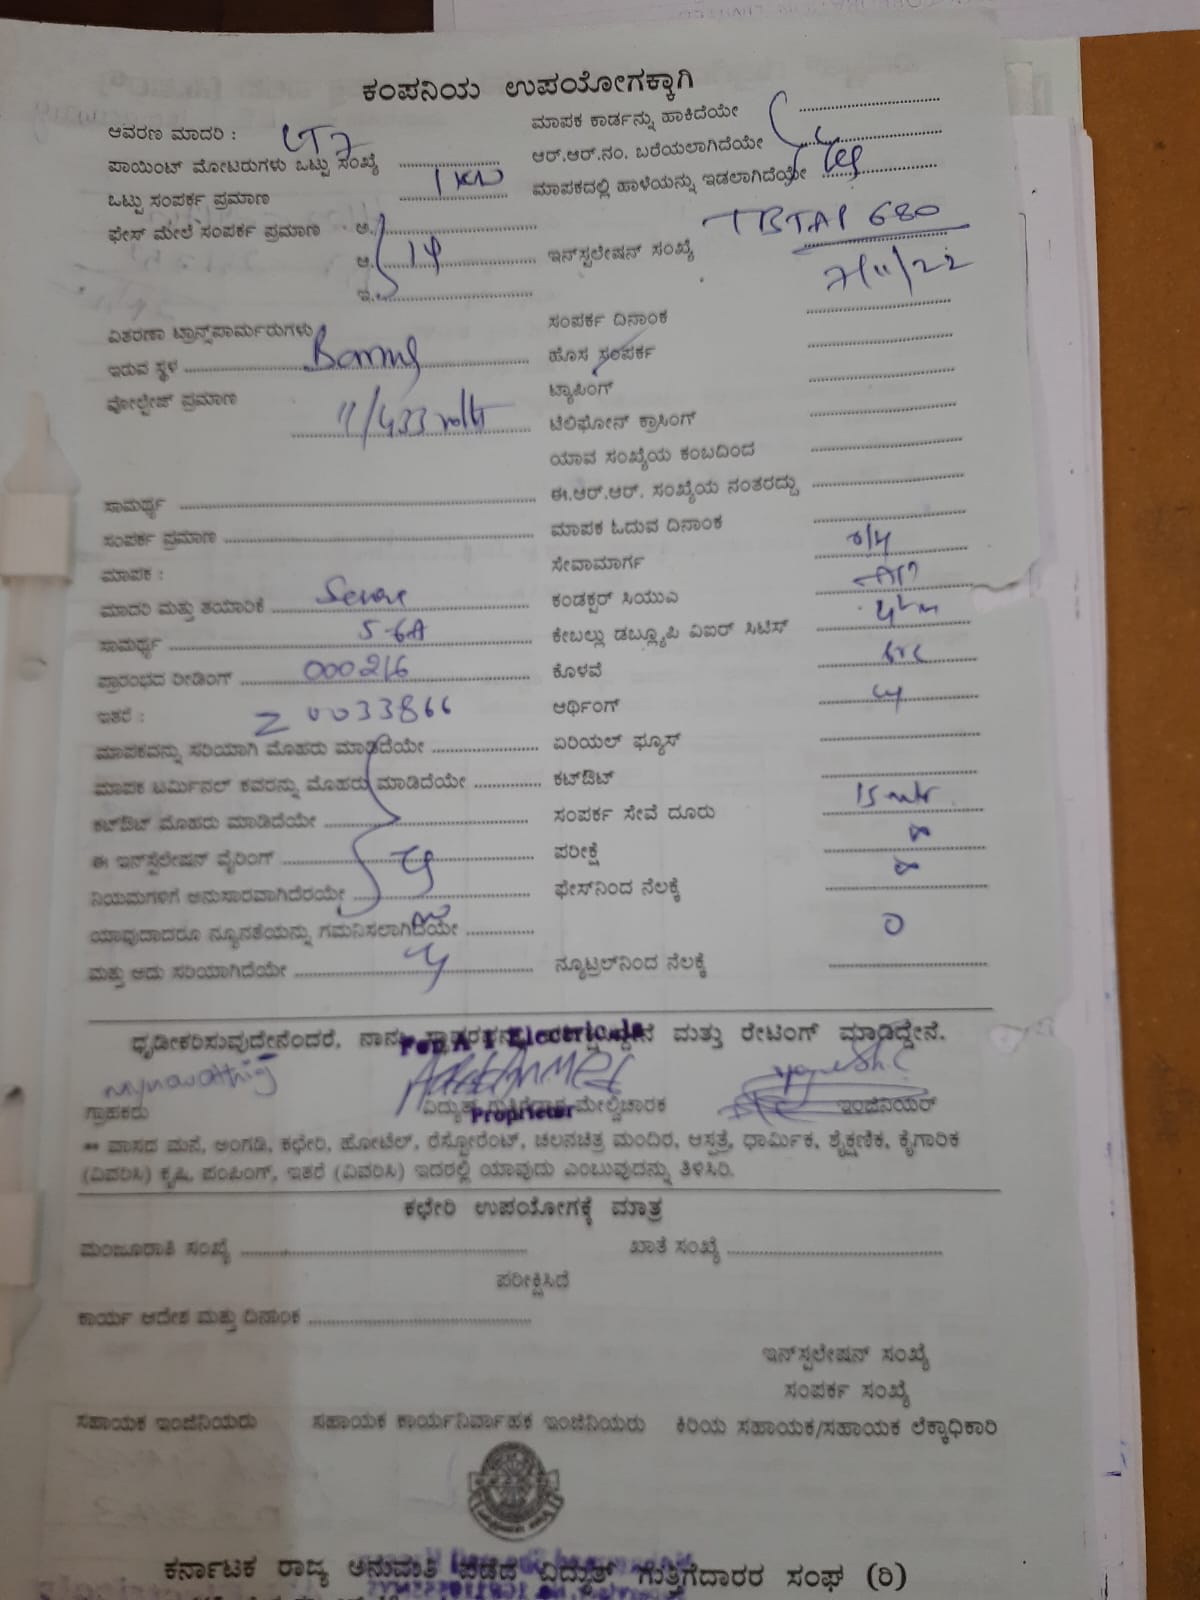 ಕಂಪನಿಯ ಉಪಯೋಗಕ್ಕಾಗಿ
ಆವರಣ ಮಾದರಿ : LT7
ಮಾಪಕ ಕಾರ್ಡನ್ನು ಹಾಕಿದೆಯೇ
ಪಾಯಿಂಟ್ ಮೋಟರುಗಳು ಒಟ್ಟು ಸಂಖ್ಯೆ
ಆರ್.ಆರ್.ನಂ. ಬರೆಯಲಾಗಿದೆಯೇ
ಒಟ್ಟು ಸಂಪರ್ಕ ಪ್ರಮಾಣ 1 KW
ಮಾಪಕದಲ್ಲಿ ಹಾಳೆಯನ್ನು ಇಡಲಾಗಿದೆಯೇ
ಫೇಸ್ ಮೇಲೆ ಸಂಪರ್ಕ ಪ್ರಮಾಣ ಅ.
ಆ. 1φ
ಇ.
ಇನ್‌ಸ್ಟಲೇಷನ್ ಸಂಖ್ಯೆ TBTAP 680
7/11/22
ವಿತರಣಾ ಟ್ರಾನ್ಸ್‌ಪಾರ್ಮರುಗಳು
ಸಂಪರ್ಕ ದಿನಾಂಕ
ಇರುವ ಸ್ಥಳ
ಹೊಸ ಸಂಪರ್ಕ
ವೋಲ್ಟೇಜ್ ಪ್ರಮಾಣ 11/433 volt
ಟ್ಯಾಪಿಂಗ್
ಟೆಲಿಫೋನ್ ಕ್ರಾಸಿಂಗ್
ಯಾವ ಸಂಖ್ಯೆಯ ಕಂಬದಿಂದ
ಸಾಮರ್ಥ್ಯ
ಈ.ಆರ್.ಆರ್. ಸಂಖ್ಯೆಯ ನಂತರದ್ದು
ಸಂಪರ್ಕ ಪ್ರಮಾಣ
ಮಾಪಕ ಓದುವ ದಿನಾಂಕ
ಮಾಪಕ :
ಸೇವಾಮಾರ್ಗ
ಮಾದರಿ ಮತ್ತು ತಯಾರಿಕೆ
ಕಂಡಕ್ಟರ್ ಸಿಯುಎ
ಸಾಮರ್ಥ್ಯ 5-6A
ಕೇಬಲ್ಲು ಡಬ್ಲ್ಯೂಪಿ ವಿಐರ್ ಸಿಟಿಸ್
ಪ್ರಾರಂಭದ ರೀಡಿಂಗ್ 000216
ಕೊಳವೆ
ಇತರೆ : Z 0033866
ಆರ್ಥಿಂಗ್
ಮಾಪಕವನ್ನು ಸರಿಯಾಗಿ ಮೊಹರು ಮಾಡಿದೆಯೇ
ಏರಿಯಲ್ ಫ್ಯೂಸ್
ಮಾಪಕ ಟರ್ಮಿನಲ್ ಕವರನ್ನು ಮೊಹರು ಮಾಡಿದೆಯೇ
ಕಟ್‌ಔಟ್
ಕಟ್‌ಔಟ್ ಮೊಹರು ಮಾಡಿದೆಯೇ
ಸಂಪರ್ಕ ಸೇವೆ ದೂರು 15 mtr
ಈ ಇನ್‌ಸ್ಟಲೇಷನ್ ವೈರಿಂಗ್
ಪರೀಕ್ಷೆ
ನಿಯಮಗಳಿಗೆ ಅನುಸಾರವಾಗಿದೆರಯೇ
ಫೇಸ್‌ನಿಂದ ನೆಲಕ್ಕೆ
ಯಾವುದಾದರೂ ನ್ಯೂನತೆಯನ್ನು ಗಮನಿಸಲಾಗಿದೆಯೇ
0
ಮತ್ತು ಅದು ಸರಿಯಾಗಿದೆಯೇ
ನ್ಯೂಟ್ರಲ್‌ನಿಂದ ನೆಲಕ್ಕೆ
ಧೃಡೀಕರಿಸುವುದೇನೆಂದರೆ, ನಾನು ಮತ್ತು ರೇಟಿಂಗ್ ಮಾಡಿದ್ದೇನೆ.
For A 1 Electricals
ಗ್ರಾಹಕರು
ವಿದ್ಯುತ್ ಗುತ್ತಿಗೆದಾರ ಮೇಲ್ವಿಚಾರಕ
ಇಂಜಿನಿಯರ್
Proprietor
** ವಾಸದ ಮನೆ, ಅಂಗಡಿ, ಕಛೇರಿ, ಹೋಟೆಲ್, ರೆಸ್ಟೋರೆಂಟ್, ಚಲನಚಿತ್ರ ಮಂದಿರ, ಆಸ್ಪತ್ರೆ, ಧಾರ್ಮಿಕ, ಶೈಕ್ಷಣಿಕ, ಕೈಗಾರಿಕ
(ವಿವರಿಸಿ) ಕೃಷಿ, ಪಂಪಿಂಗ್, ಇತರೆ (ವಿವರಿಸಿ) ಇದರಲ್ಲಿ ಯಾವುದು ಎಂಬುವುದನ್ನು ತಿಳಿಸಿರಿ.
ಕಛೇರಿ ಉಪಯೋಗಕ್ಕೆ ಮಾತ್ರ
ಮಂಜೂರಾತಿ ಸಂಖ್ಯೆ
ಖಾತೆ ಸಂಖ್ಯೆ
ಪರೀಕ್ಷಿಸಿದೆ
ಕಾರ್ಯ ಆದೇಶ ಮತ್ತು ದಿನಾಂಕ
ಇನ್‌ಸ್ಪಲೇಷನ್ ಸಂಖ್ಯೆ
ಸಂಪರ್ಕ ಸಂಖ್ಯೆ
ಸಹಾಯಕ ಇಂಜಿನಿಯರು ಸಹಾಯಕ ಕಾರ್ಯನಿರ್ವಾಹಕ ಇಂಜಿನಿಯರು ಕಿರಿಯ ಸಹಾಯಕ/ಸಹಾಯಕ ಲೆಕ್ಕಾಧಿಕಾರಿ
ಕರ್ನಾಟಕ ರಾಜ್ಯ ಅನುಮತಿ ಪಡೆದ ವಿದ್ಯುತ್ ಗುತ್ತಿಗೆದಾರರ ಸಂಘ (ರಿ)